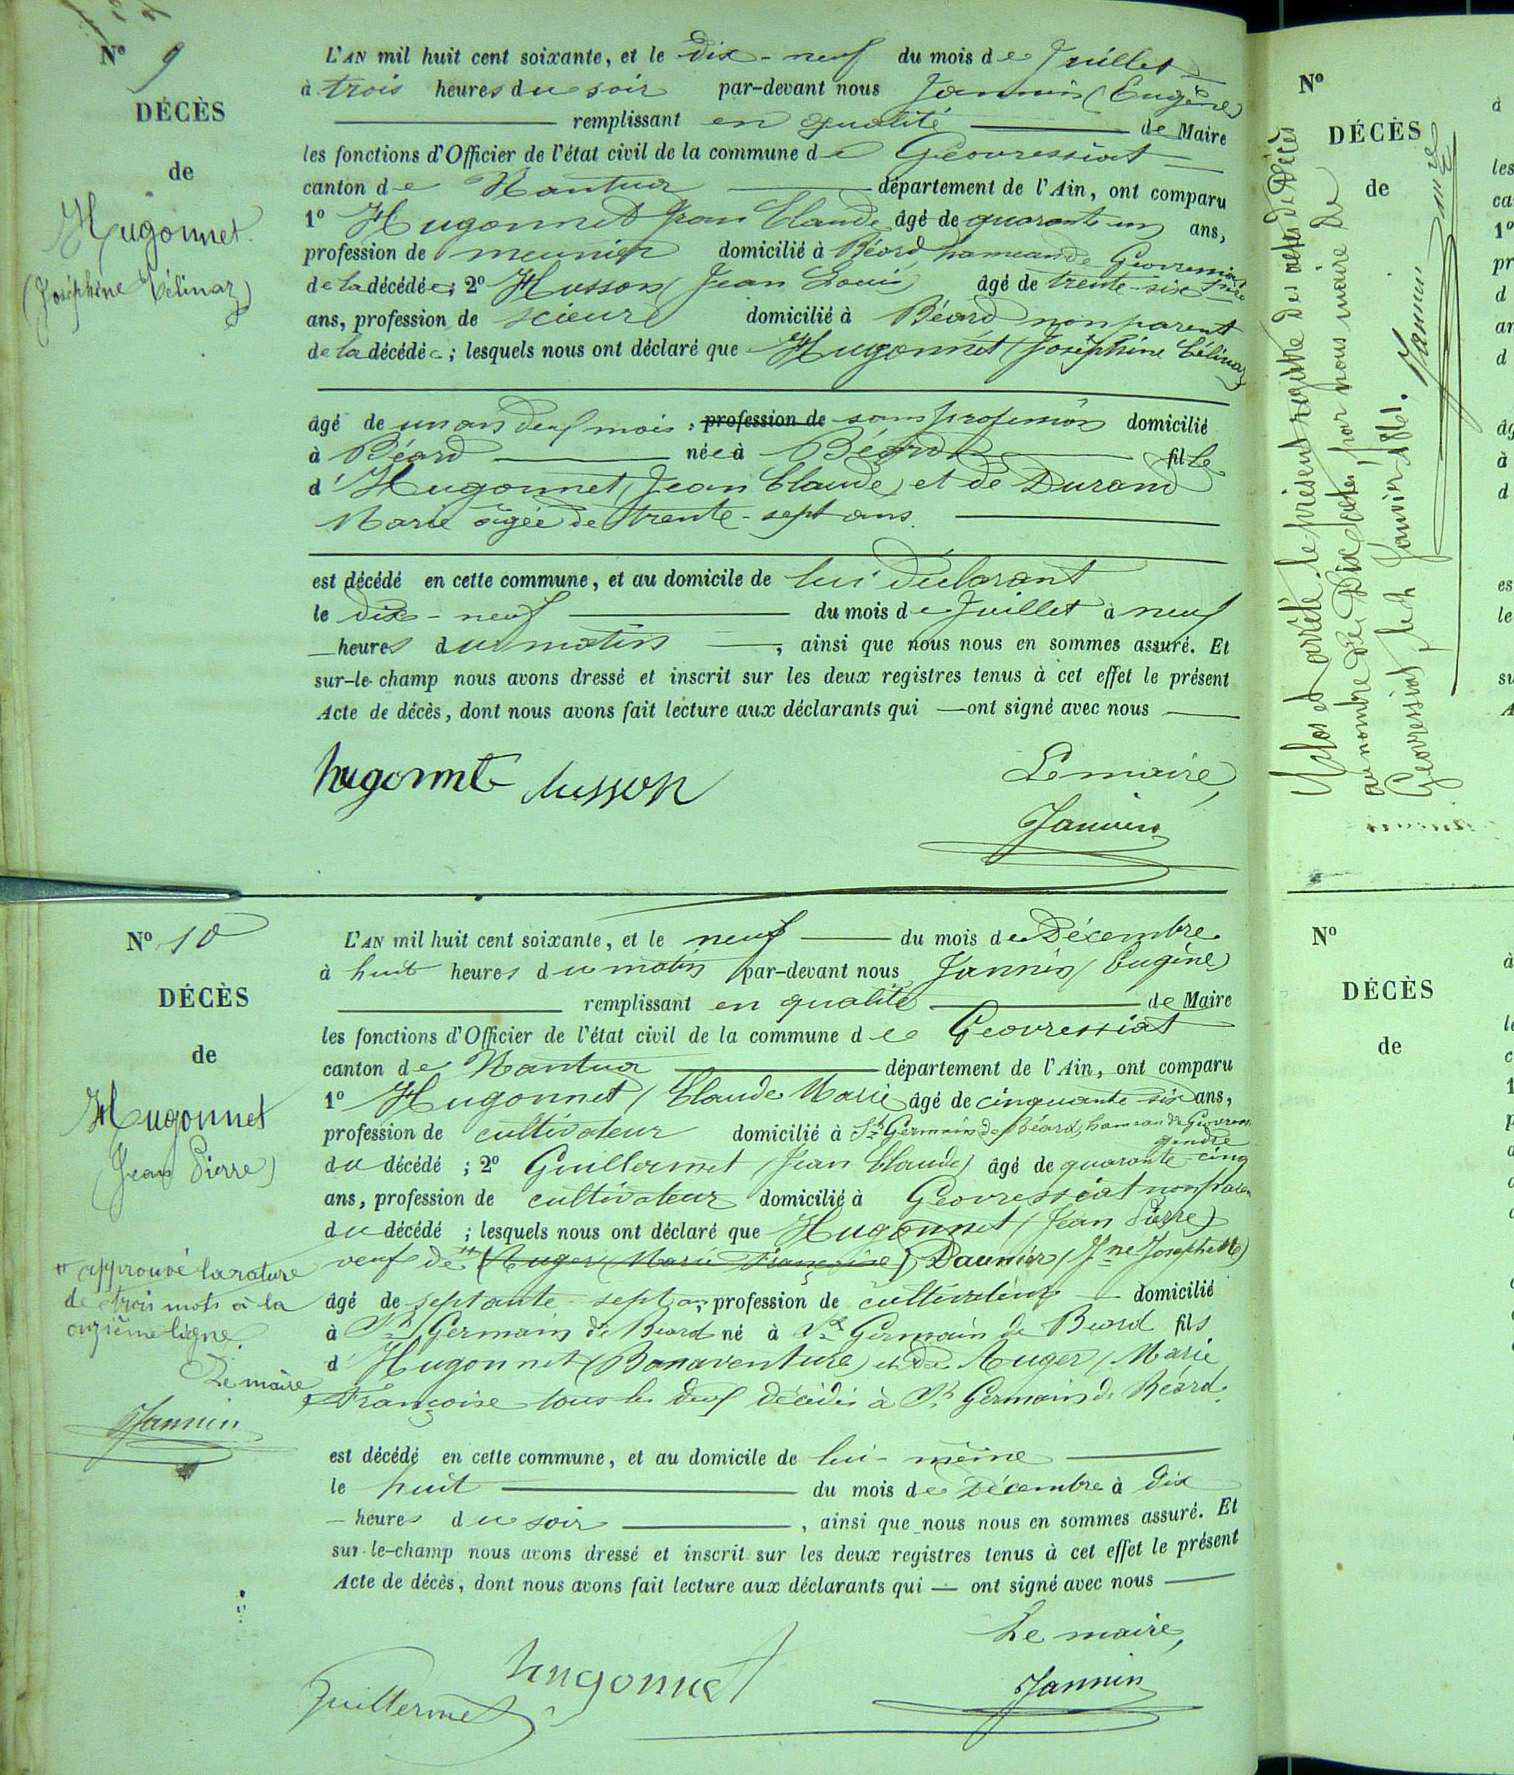 N° 9
DÉCÈS
de
Hugonnet
(Joséphine Célinaz)
L'AN mil huit cent soixante, et le dix-neuf du mois de Juillet
à trois heures du soir par-devant nous Jannin (Eugène)
remplissant en qualité de Maire
les fonctions d'Officier de l'état civil de la commune de Geovressiat
canton de Nantua département de l'Ain, ont comparu
1° Hugonnet Jean Claude âgé de quarante un ans,
profession de meunier domicilié à Béard hameau de Geovressiat père
de la décédée; 2° Husson Jean Louis âgé de trente-six
ans, profession de scieur domicilié à Béard non parent
de la décédée; lesquels nous ont déclaré que Hugonnet (Joséphine Célinaz)
âgé de un an deux mois, profession de sans profession domicilié
à Béard née à Béard fille
d'Hugonnet, Jean Claude, et de Durand
Marie âgée de trente-sept ans.
est décédé en cette commune, et au domicile de lui déclarant
le dix-neuf du mois de Juillet à neuf
heures du matin, ainsi que nous nous en sommes assuré. Et
sur-le-champ nous avons dressé et inscrit sur les deux registres tenus à cet effet le présent
Acte de décès, dont nous avons fait lecture aux déclarants qui ont signé avec nous
hugonnet husson
Le maire,
Jannin
N° 10
DÉCÈS
de
Hugonnet
(Jean Pierre)
" approuvé la rature
de trois mots à la
onzième ligne.
Le maire
Jannin
L'AN mil huit cent soixante, et le neuf du mois de Décembre
à huit heures du matin par-devant nous Jannin (Eugène)
remplissant en qualité de Maire
les fonctions d'Officier de l'état civil de la commune de Geovressiat
canton de Nantua département de l'Ain, ont comparu
1° Hugonnet (Claude Marie âgé de cinquante six ans,
profession de cultivateur domicilié à St Germain de Béard, hameau de Geovress gendre
du décédé; 2° Guillermet (Jean Claude) âgé de quarante-cinq
ans, profession de cultivateur domicilié à Geovressiat non paren
du décédé; lesquels nous ont déclaré que Hugonnet (Jean Pierre)
veuf de " (Auger (Marie Françoise) Daunier (Jne Josephette)
âgé de septante sept ans, profession de cultivateur domicilié
à St Germain de Béard né à St Germain de Béard fils
d'Hugonnet (Bonaventure) et de Auger (Marie
Françoise tous les deux décédés à St Germain de Béard.
est décédé en cette commune, et au domicile de lui-même
le huit du mois de Décembre à dix
heures du soir, ainsi que nous nous en sommes assuré. Et
sur-le-champ nous avons dressé et inscrit sur les deux registres tenus à cet effet le présent
Acte de décès, dont nous avons fait lecture aux déclarants qui ont signé avec nous
Le maire,
Guillermet hugonnet Jannin
N°
DÉCÈS
de
Clos et arrêté le présent registre des actes de Décès
au nombre de Dix actes, par nous maire de
Geovressiat, le Janvier 1861.
Jannin
N°
DÉCÈS
de